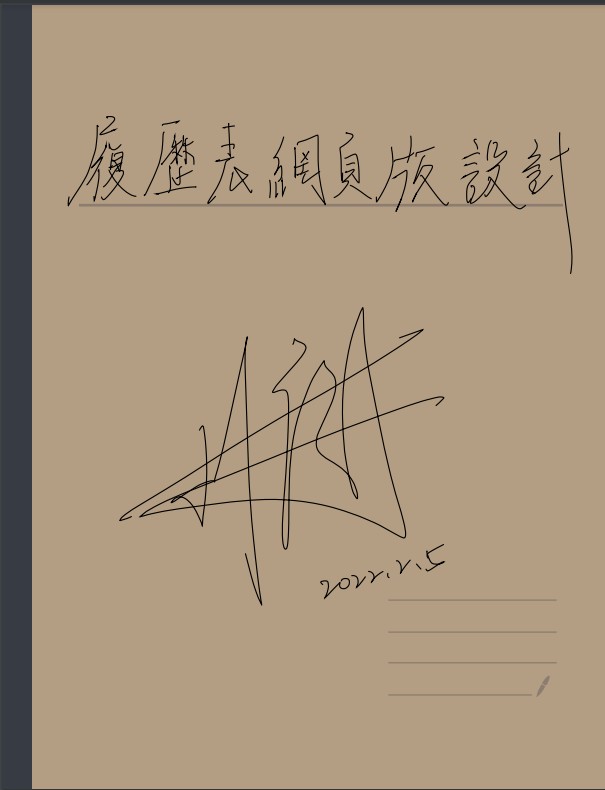 履歷表網頁版設計
2022.2.5